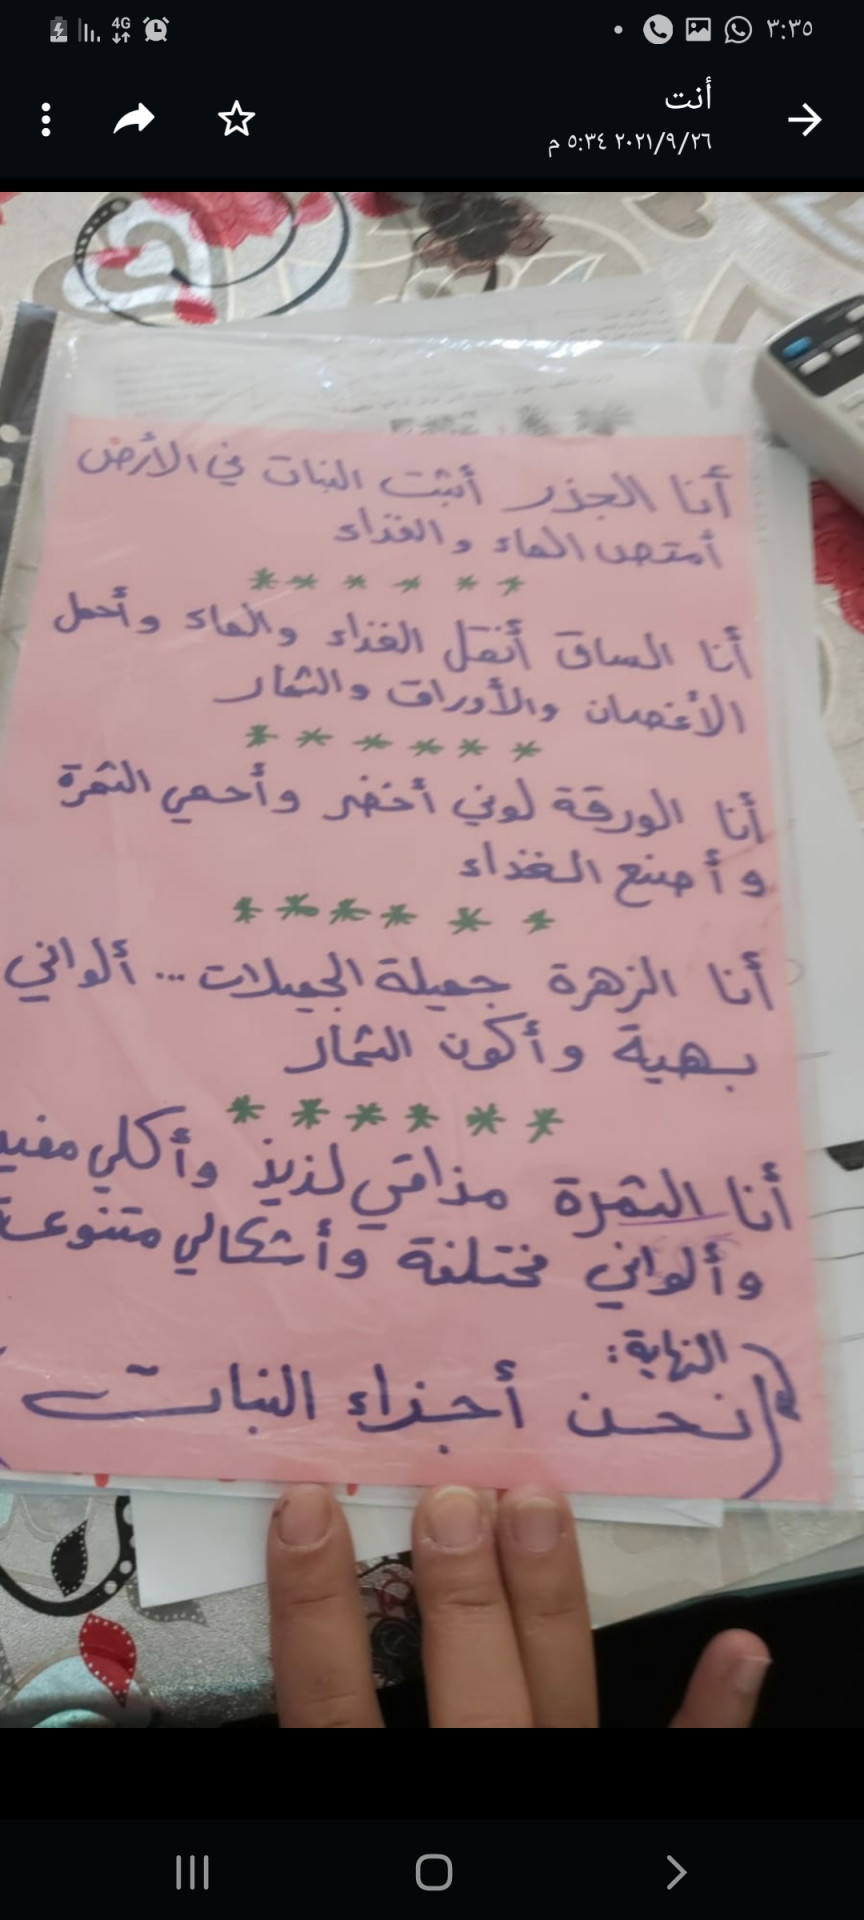 ٣:٣٥
4G
أنت
٢٠٢١/٩/٢٦ ٥:٣٤ م
أنا الجذر أثبت النبات في الأرض
أمتص الماء والغذاء
****** 
أنا الساق أنقل الغذاء والماء وأحمل
الأغصان والأوراق والثمار
******
أنا الورقة لوني أخضر وأحمي الثمرة
وأصنع الغذاء
******
أنا الزهرة جميلة الجميلات... ألواني
بهية وأكون الثمار
******
أنا الثمرة مذاقي لذيذ وأكلي مفيد
وألواني مختلفة وأشكالي متنوعة
النهاية:
(نحن أجزاء النبات)